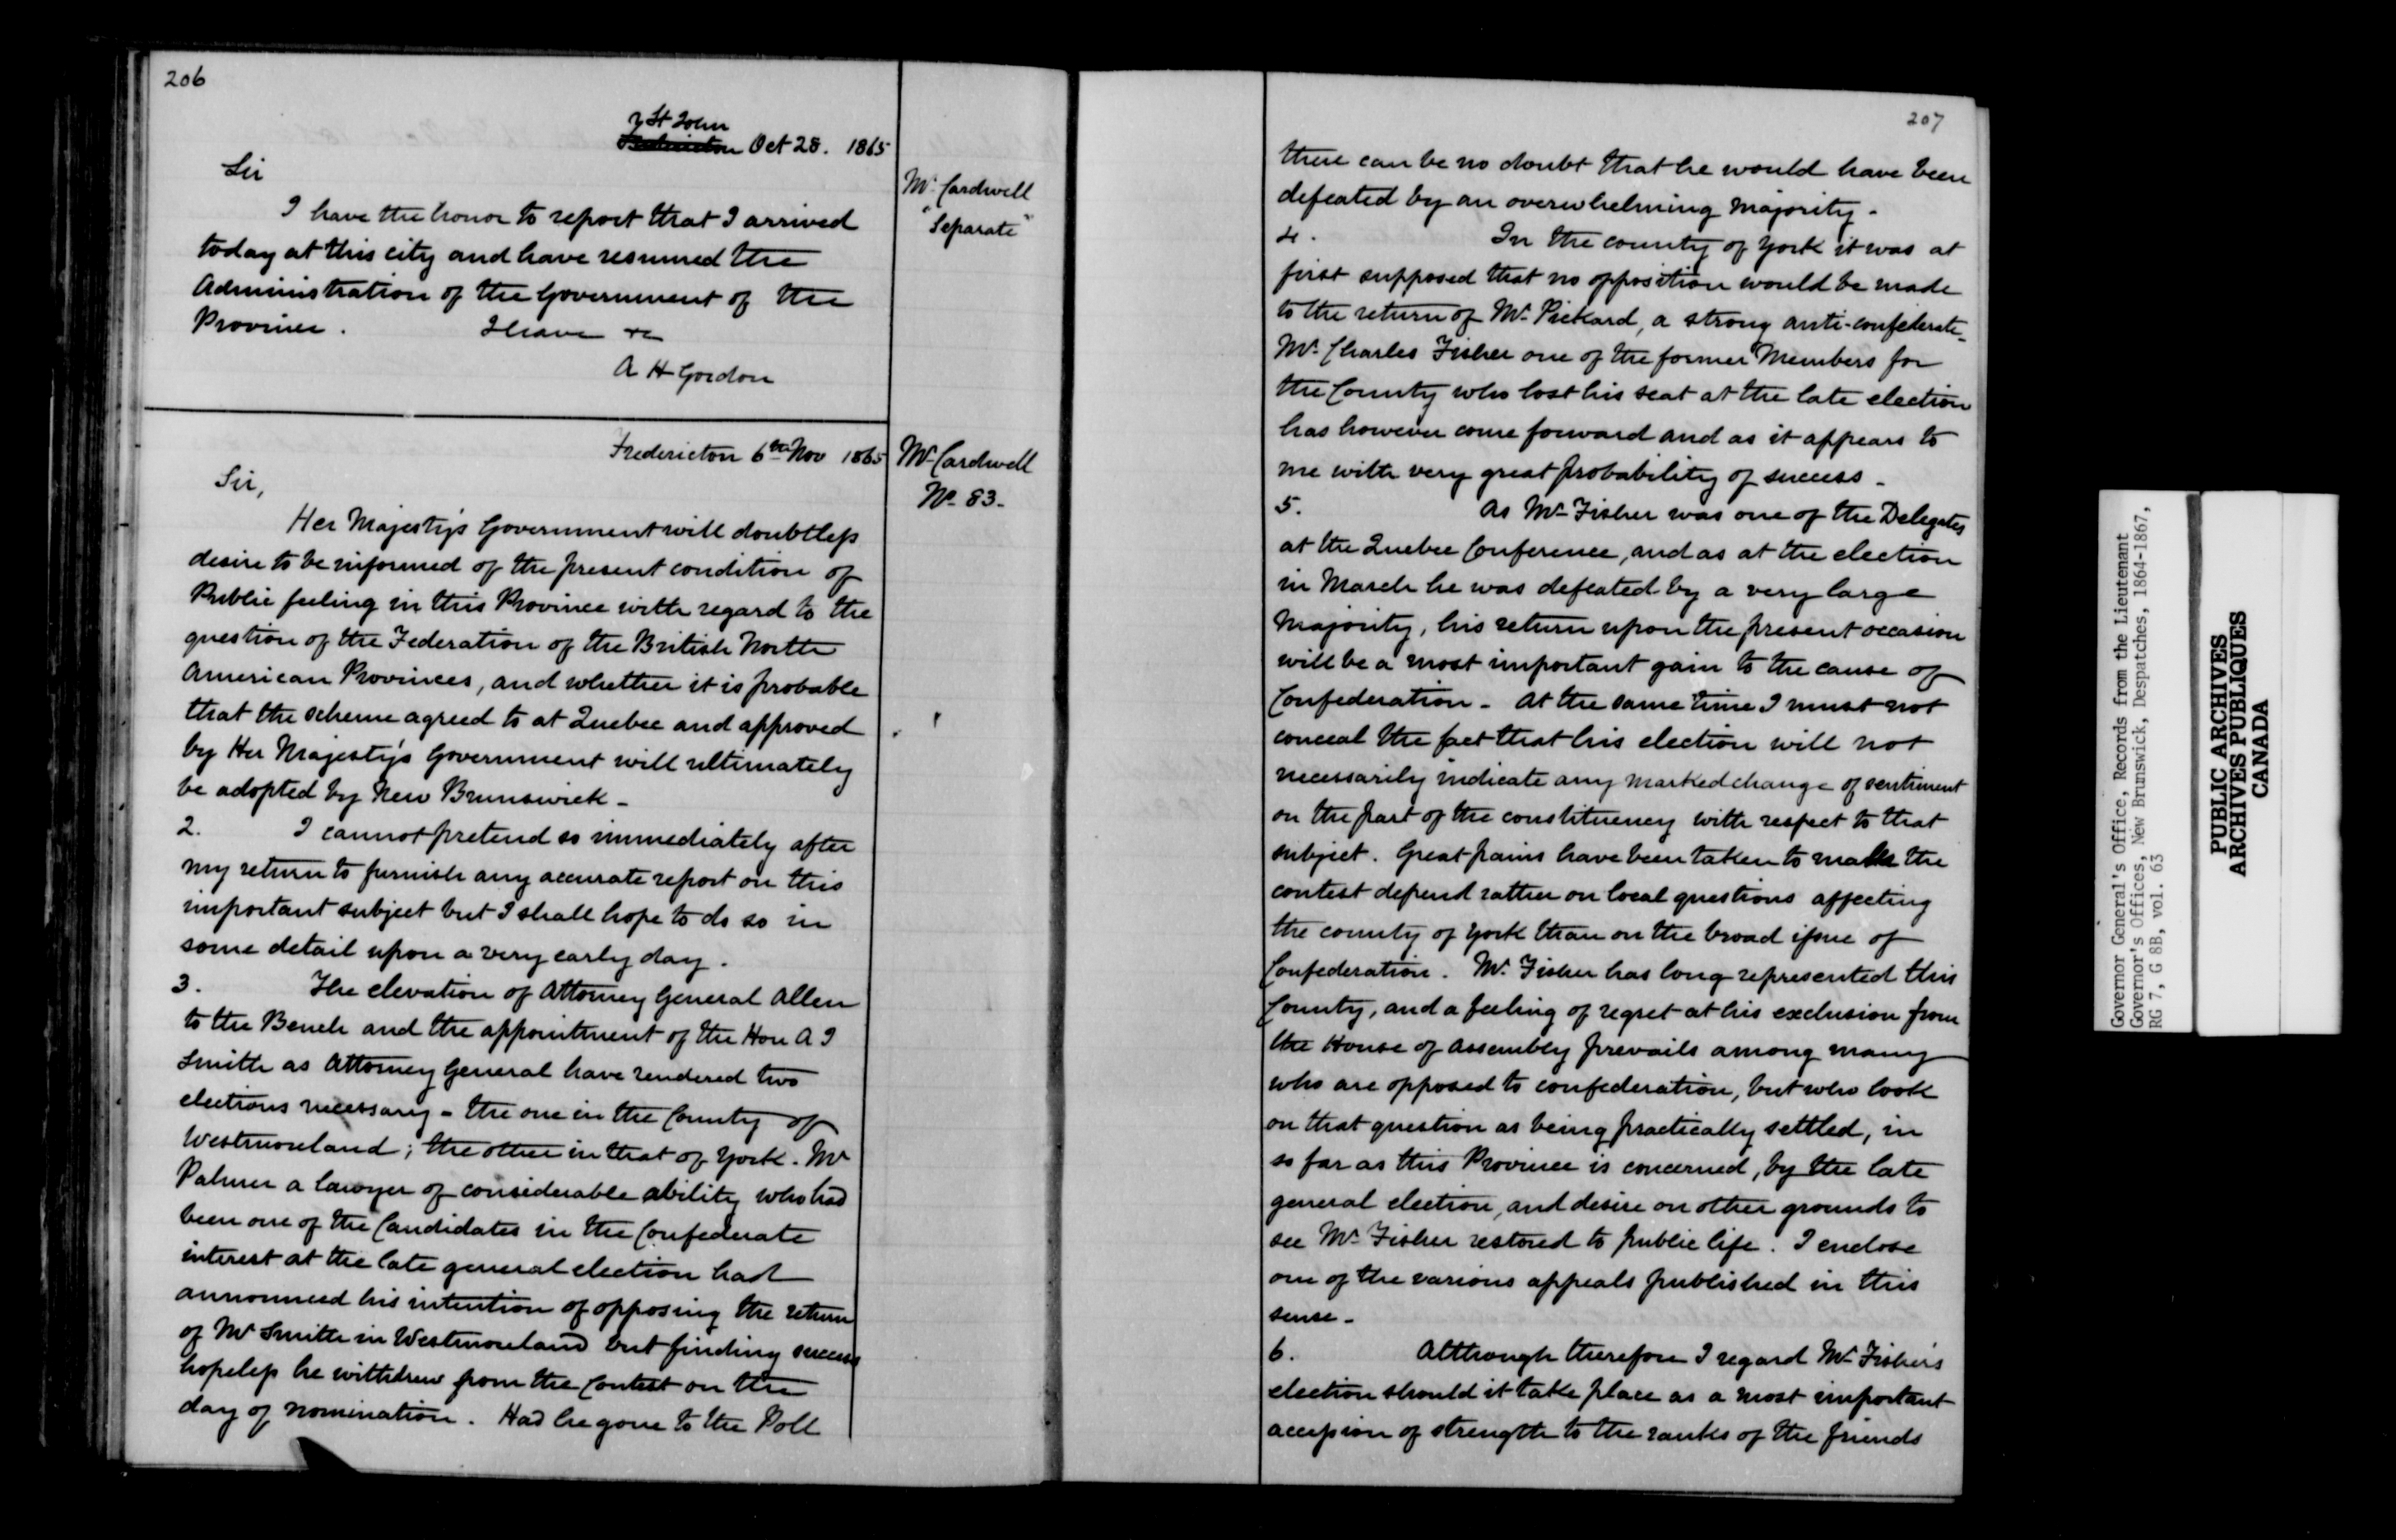 206
St John
Fredericton Oct 28. 1865
Mr Cardwell
"Separate"
Sir
I have the honor to report that I arrived
today at this city and have resumed the
Administration of the Government of the
Province. I have &c
A H Gordon
Fredericton 6th Nov 1865
Mr Cardwell
No. 83.
Sir,
Her Majesty's Government will doubtless
desire to be informed of the present condition of
Public feeling in this Province with regard to the
question of the Federation of the British North
American Provinces, and whether it is probable
that the scheme agreed to at Quebec and approved
by Her Majesty's Government will ultimately
be adopted by New Brunswick -
2. I cannot pretend so immediately after
my return to furnish any accurate report on this
important subject but I shall hope to do so in
some detail upon a very early day.
3. The elevation of Attorney General Allen
to the Bench and the appointment of the Hon A J
Smith as Attorney General have rendered two
elections necessary - the one in the County of
Westmoreland; the other in that of York. Mr
Palmer a lawyer of considerable ability who had
been one of the Candidates in the Confederate
interest at the late general election had
announced his intention of opposing the return
of Mr Smith in Westmoreland but finding success
hopeless he withdrew from the Contest on the
day of nomination. Had he gone to the Poll
207
there can be no doubt that he would have been
defeated by an overwhelming majority -
4. In the county of York it was at
first supposed that no opposition would be made
to the return of Mr Pickard, a strong anti-confederate -
Mr Charles Fisher one of the former Members for
the County who lost his seat at the late election
has however come forward and as it appears to
me with very great probability of success -
5. As Mr Fisher was one of the Delegates
at the Quebec Conference, and as at the election
in March he was defeated by a very large
majority, his return upon the present occasion
will be a most important gain to the cause of
Confederation - At the same time I must not
conceal the fact that his election will not
necessarily indicate any marked change of sentiment
on the part of the constituency with respect to that
subject. Great pains have been taken to make the
contest depend rather on local questions affecting
the county of York than on the broad issue of
Confederation. Mr Fisher has long represented this
County, and a feeling of regret at his exclusion from
the House of Assembly prevails among many
who are opposed to confederation, but who look
on that question as being practically settled, in
so far as this Province is concerned, by the late
general election, and desire on other grounds to
see Mr Fisher restored to public life. I enclose
one of the various appeals published in this
sense -
6. Although therefore I regard Mr Fisher's
election should it take place as a most important
accession of strength to the ranks of the friends
Governor General's Office, Records from the Lieutenant
Governor's Offices, New Brunswick, Despatches, 1864-1867,
RG 7, G 8B, vol. 63
PUBLIC ARCHIVES
ARCHIVES PUBLIQUES
CANADA